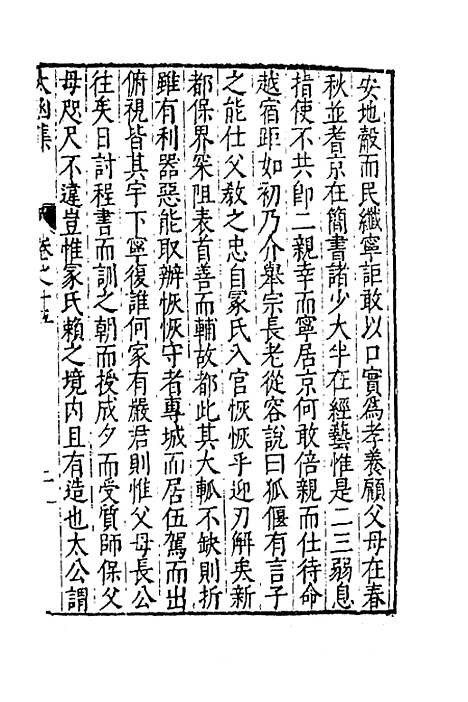 安地殽而民纖寧詎敢以口實爲孝養顧父母在春
秋並耆京在簡書諸少大半在經藝惟是二三弱息
指使不共卽二親幸而寧居京何敢倍親而仕待命
越宿距如初乃介舉宗長老從容說曰狐偃有言子
之能仕父教之忠自冡氏入官恢恢乎迎刃解矣新
都保界罙阻表首善而輔故都此其大軱不缺則折
雖有利器惡能取辦恢恢守者專城而居伍駕而出
俯視皆其宇下寧復誰何家有嚴君則惟父母長公
往矣日討程書而訓之朝而授成夕而受質師保父
母咫尺不違豈惟冡氏賴之境內且有造也太公謂
太函集 卷之十五 二